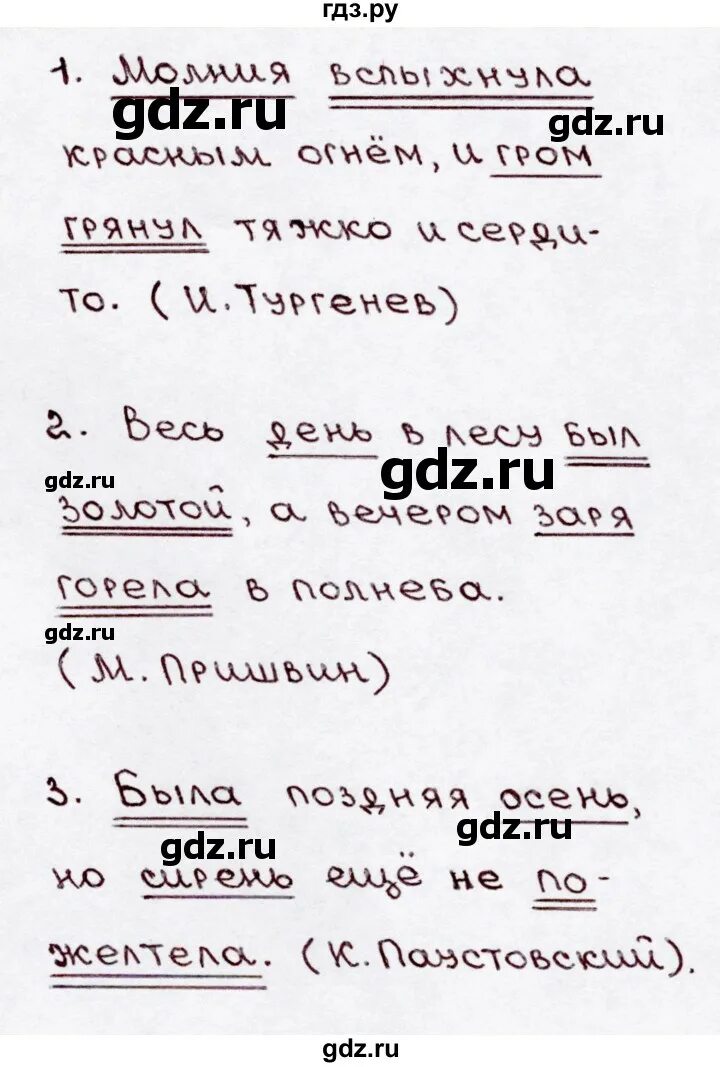 гдз.ру
1. Молния вспыхнула
gdz.ru
gdz.ru
красным огнём, и гром
грянул тяжко и серди-
то. (И. Тургенев)
2. Весь день в лесу был
gdz.ru
gdz.ru
золотой, а вечером заря
горела в полнеба.
gdz.ru
(М. Пришвин)
3. Была поздняя осень,
gdz.ru
gdz.ru
но сирень ещё не по-
желтела. (К. Паустовский).
gdz.ru